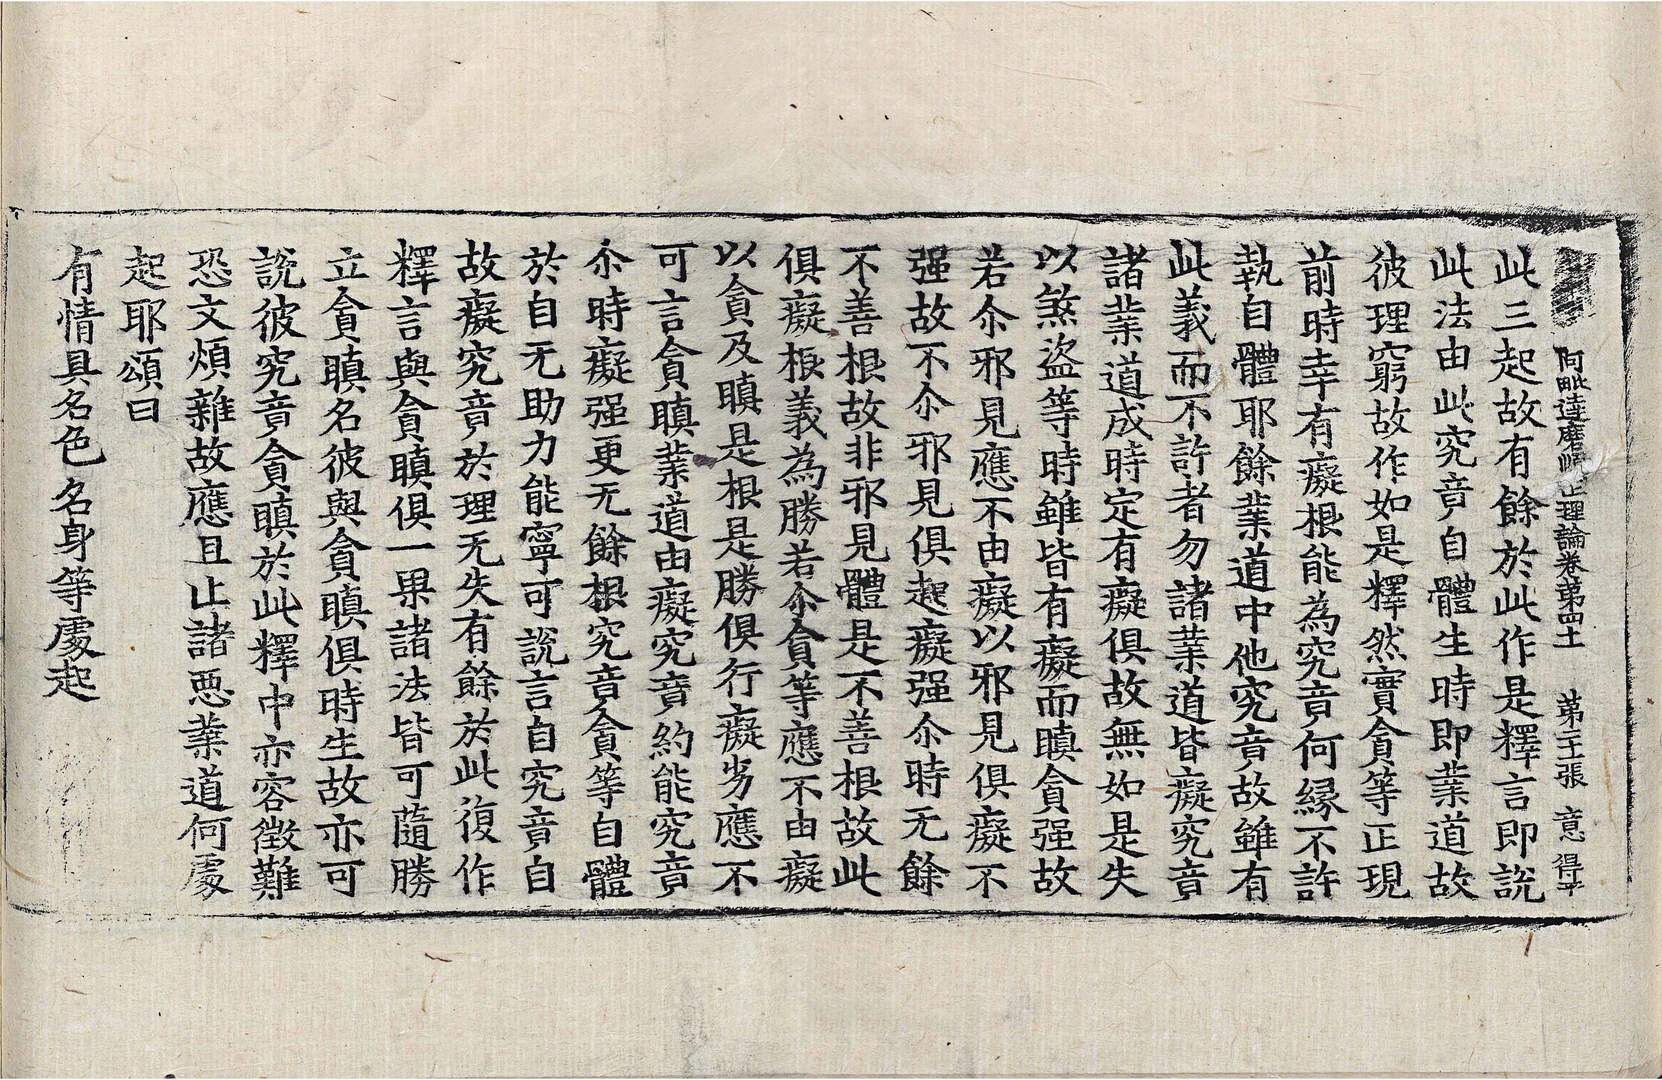 阿毗達磨順正理論卷第四十一 第二十張 意 得平
此三起故有餘於此作是釋言即說
此法由此究竟自體生時即業道故
彼理窮故作如是釋然實貪等正現
前時幸有癡根能為究竟何緣不許
執自體耶餘業道中他究竟故雖有
此義而不許者勿諸業道皆癡究竟
諸業道成時定有癡俱故無如是失
以煞盜等時雖皆有癡而瞋貪强故
若尒邪見應不由癡以邪見俱癡不
强故不尒邪見俱起癡强尒時无餘
不善根故非邪見體是不善根故此
俱癡根義為勝若尒貪等應不由癡
以貪及瞋是根是勝俱行癡劣應不
可言貪瞋業道由癡究竟約能究竟
尒時癡强更无餘根究竟貪等自體
於自无助力能寧可說言自究竟自
故癡究竟於理无失有餘於此復作
釋言與貪瞋俱一果諸法皆可隨勝
立貪瞋名彼與貪瞋俱時生故亦可
說彼究竟貪瞋於此釋中亦容徵難
恐文煩雜故應且止諸惡業道何處
起耶頌曰
有情具名色 名身等處起